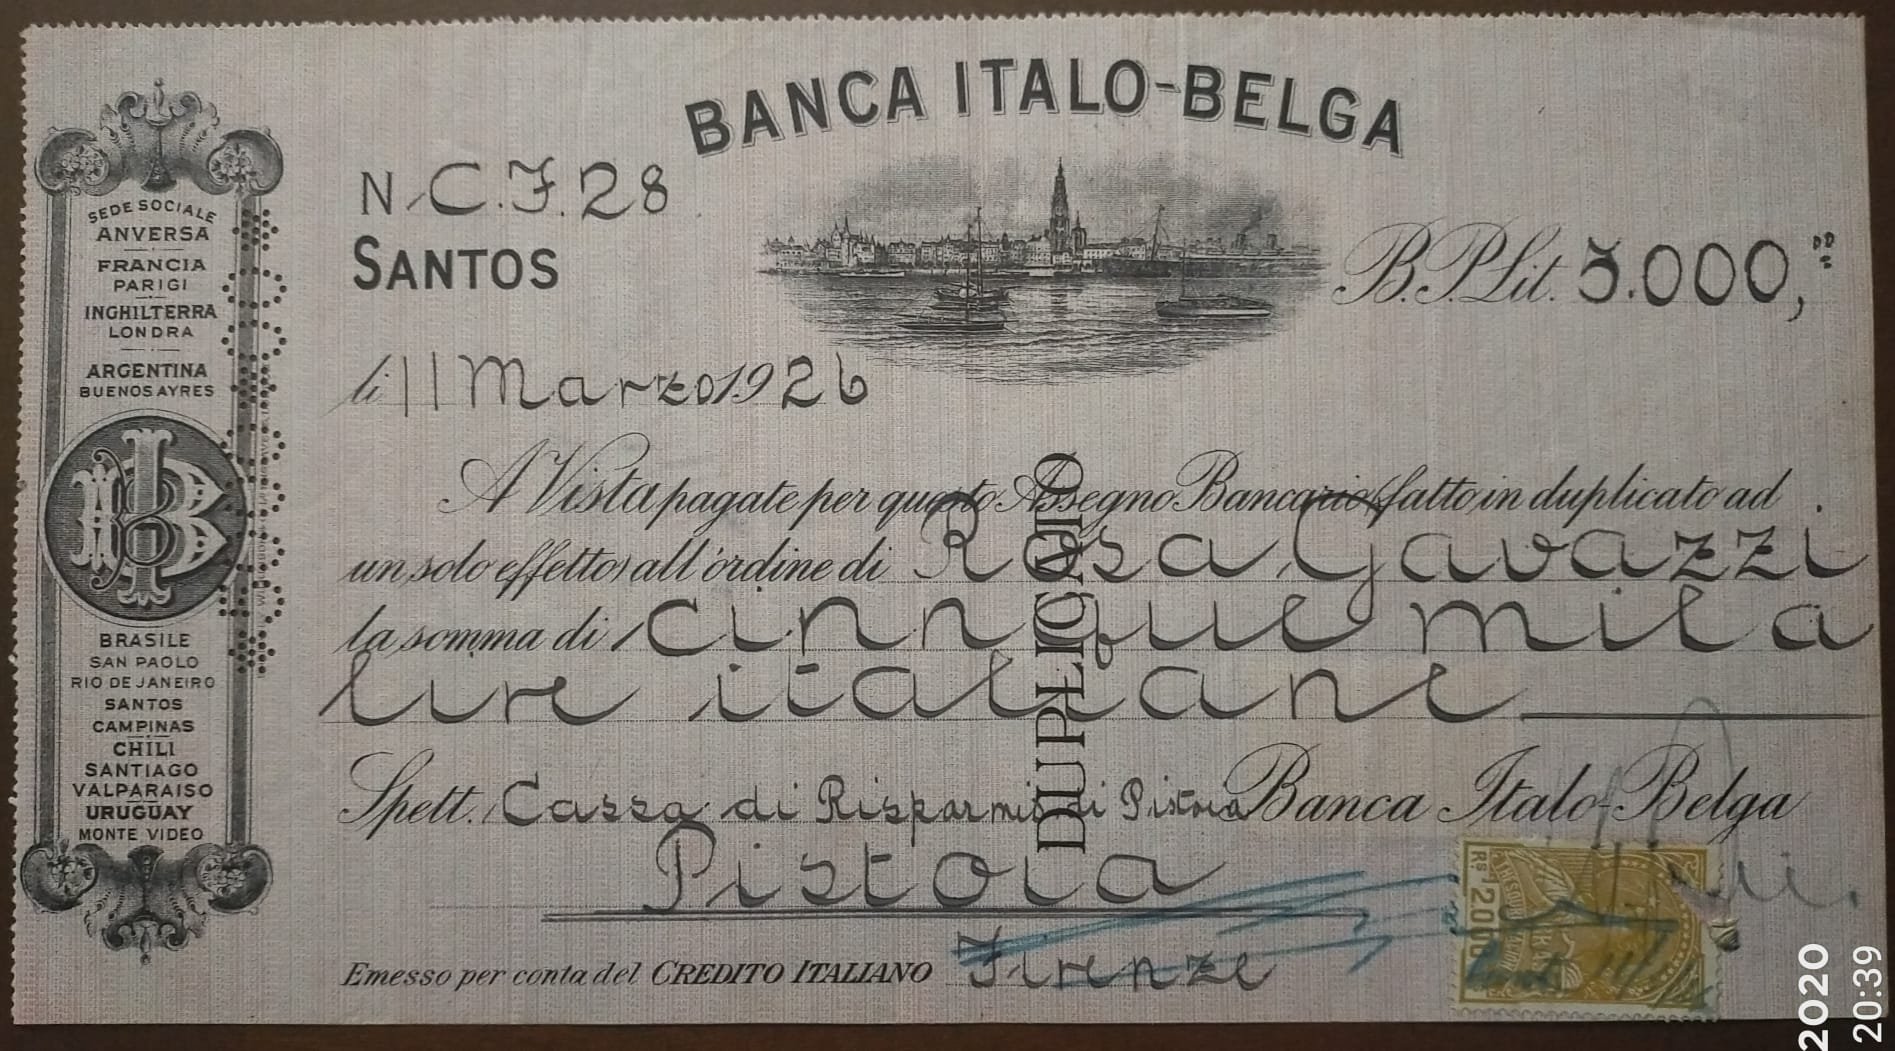 BANCA ITALO-BELGA
N C.F.28
SANTOS
B.P.Lit. 5.000,00
li 11 Marzo 1926
A Vista pagate per questo Assegno Bancario (fatto in duplicato ad
un solo effetto) all'ordine di Rosa Gavazzi
la somma di cinque mila
lire italiane
Spett. Cassa di Risparmio di Pistoia Banca Italo-Belga
Pistoia
Emesso per conta del CREDITO ITALIANO Firenze
DUPLICATO
SEDE SOCIALE
ANVERSA
FRANCIA
PARIGI
INGHILTERRA
LONDRA
ARGENTINA
BUENOS AYRES
BIB
BRASILE
SAN PAOLO
RIO DE JANEIRO
SANTOS
CAMPINAS
CHILI
SANTIAGO
VALPARAISO
URUGUAY
MONTE VIDEO
RS 2000
2020
20:39